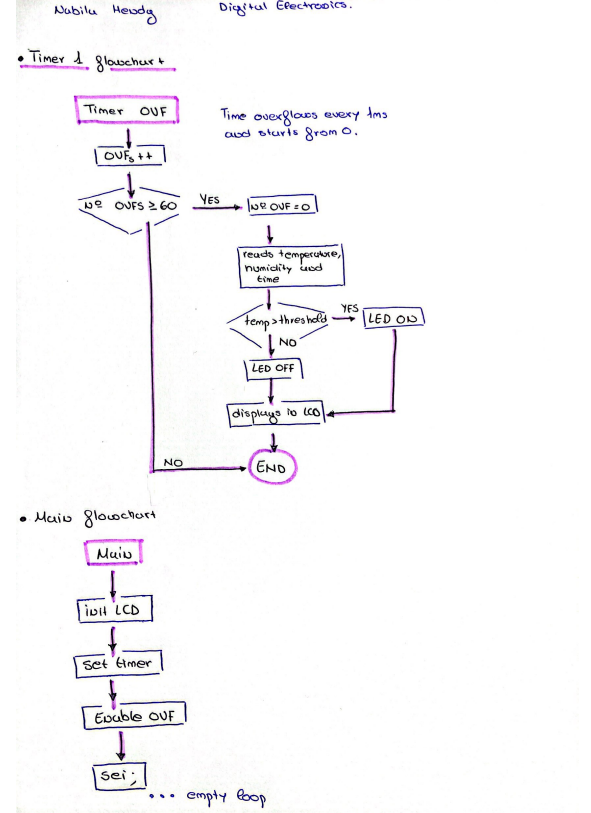 Nabila Hendy Digital Electronics.
• Timer 1 flowchart
Timer OVF
Time overflows every 1ms
and starts from 0.
OVFs ++
Nº OVFS ≥ 60
YES
Nº OVF = 0
reads temperature,
humidity and
time
temp > threshold
YES
LED ON
NO
LED OFF
displays in LCD
NO
END
• Main flowchart
Main
init LCD
Set timer
Enable OVF
sei;
... empty loop